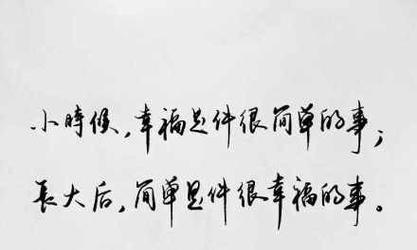 小時候，幸福是件很简单的事；
長大后，简单是件很幸福的事。